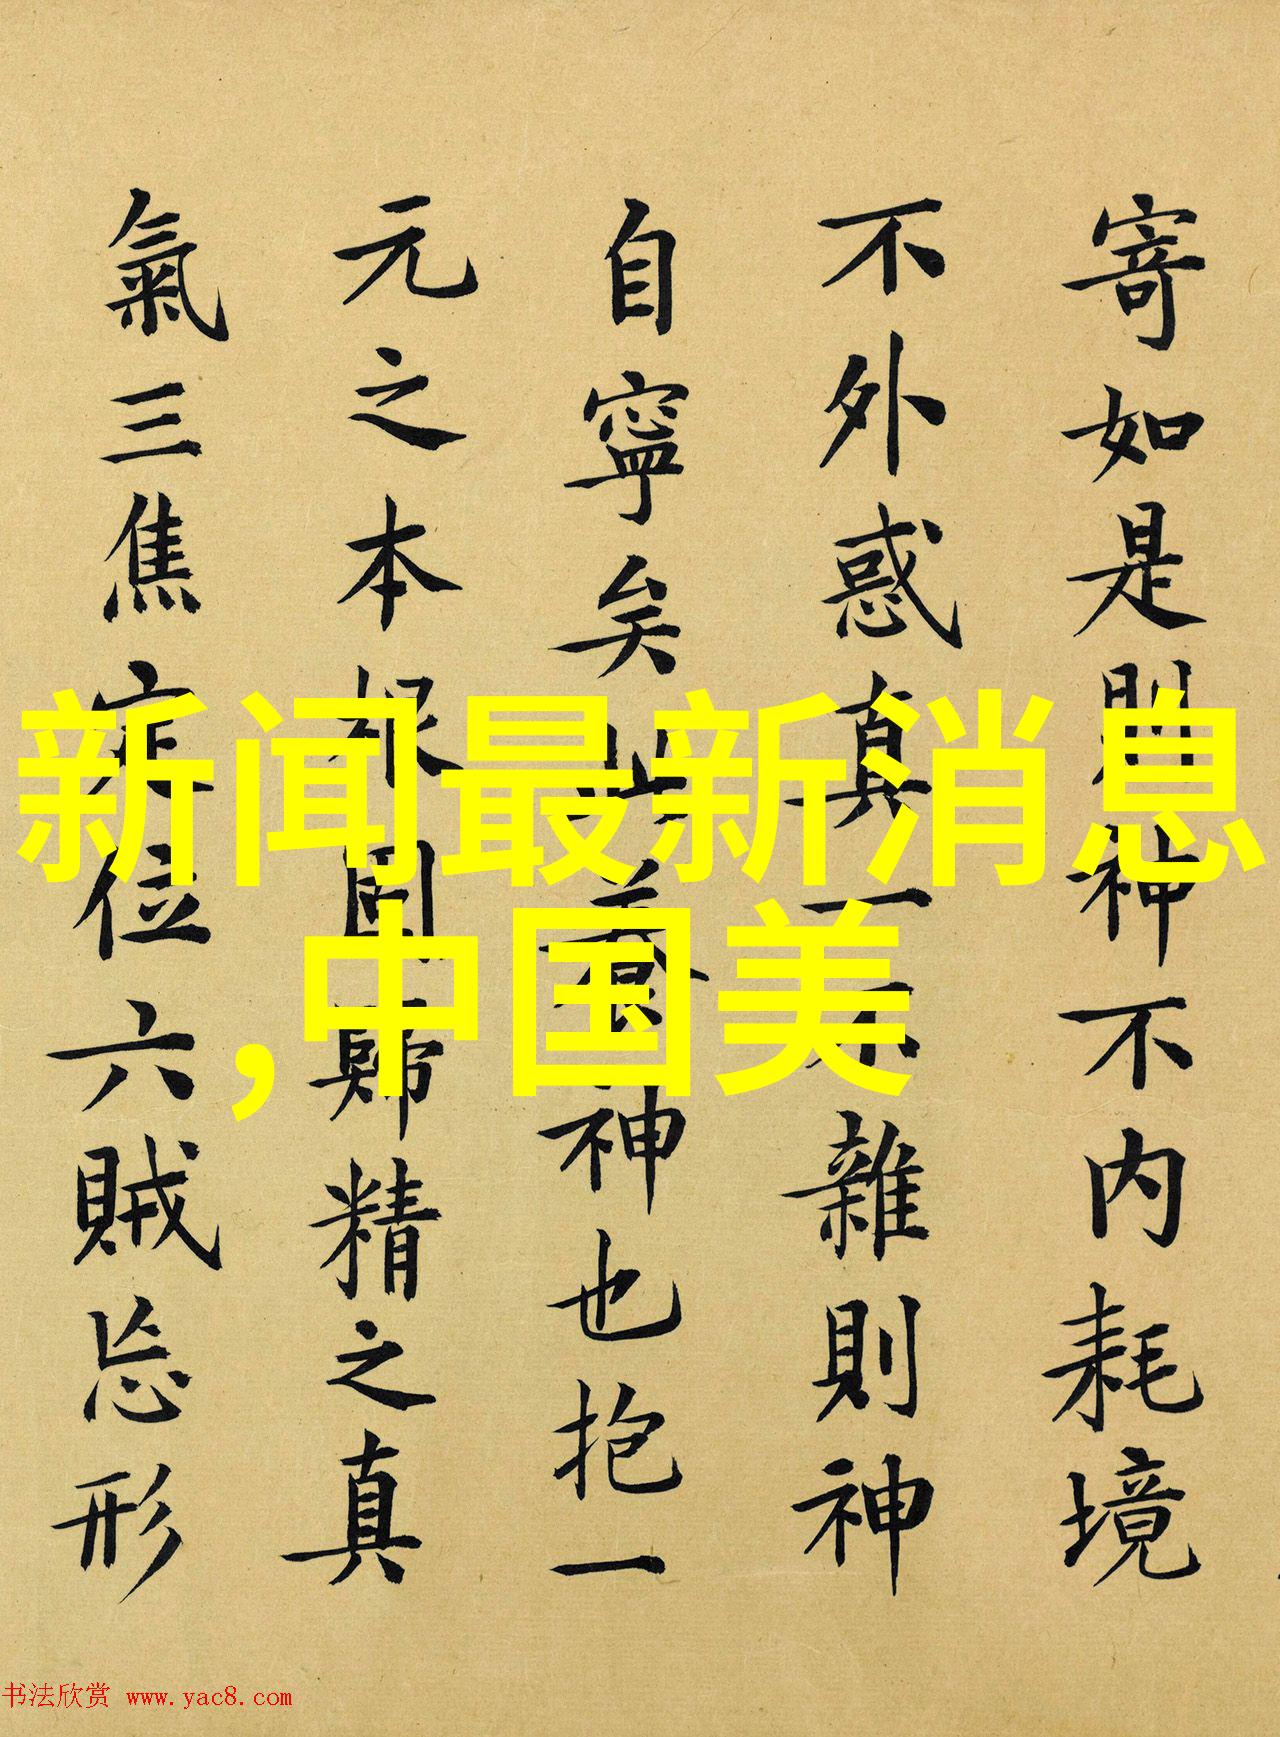 寄如是則神不内耗境
不外惑真一不雜則神
自寧矣此養神也抱一
元之本根固歸精之真
氣三焦定位六賊忘形
新闻最新消息
,中国美
书法欣赏 www.yac8.com